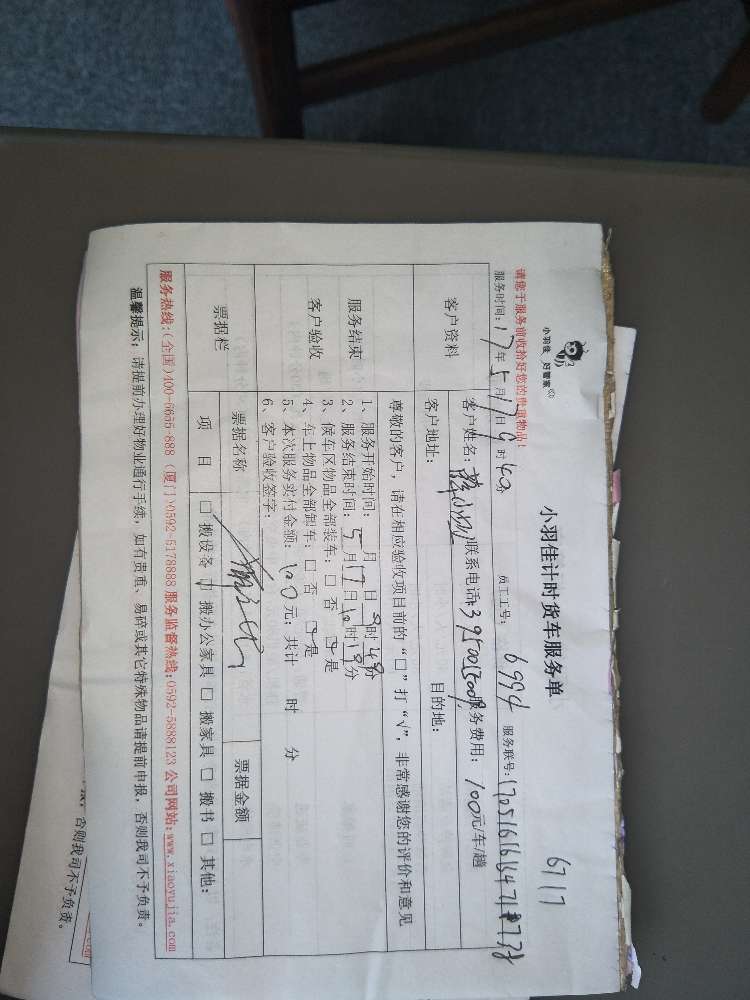 小羽佳 好管家
小羽佳计时货车服务单
6717
请您于服务前收拾好您的贵重物品!
服务时间: 17年5月17日9时40分 员工工号: 6994 服务联号:
客户资料
客户姓名: 联系电话: 服务费用: 100元/车/趟
客户地址: 目的地:
尊敬的客户, 请在相应验收项目前的“□”打“√”, 非常感谢您的评价和意见
服务结束
客户验收
1、服务开始时间: 月 日9时49分
2、服务结束时间: 5月17日10时19分
3、候车区物品全部装车: □ 否 □ 是
4、车上物品全部卸车: □ 否 □ 是
5、本次服务实付金额: 100元; 共计 时 分
6、客户验收签字:
票据栏
票据名称 票据金额
项 目 □ 搬设备 □ 搬办公家具 □ 搬家具 □ 搬书 □ 其他:
服务热线: (全国)400-6656-888 (厦门)0592-5178888 服务监督热线:0592-5888123 公司网站:www.xiaoyujia.com
温馨提示: 请提前办理好物业通行手续, 如有贵重、易碎或其它特殊物品请提前申报, 否则我司不予负责。
否则我司不予负责。